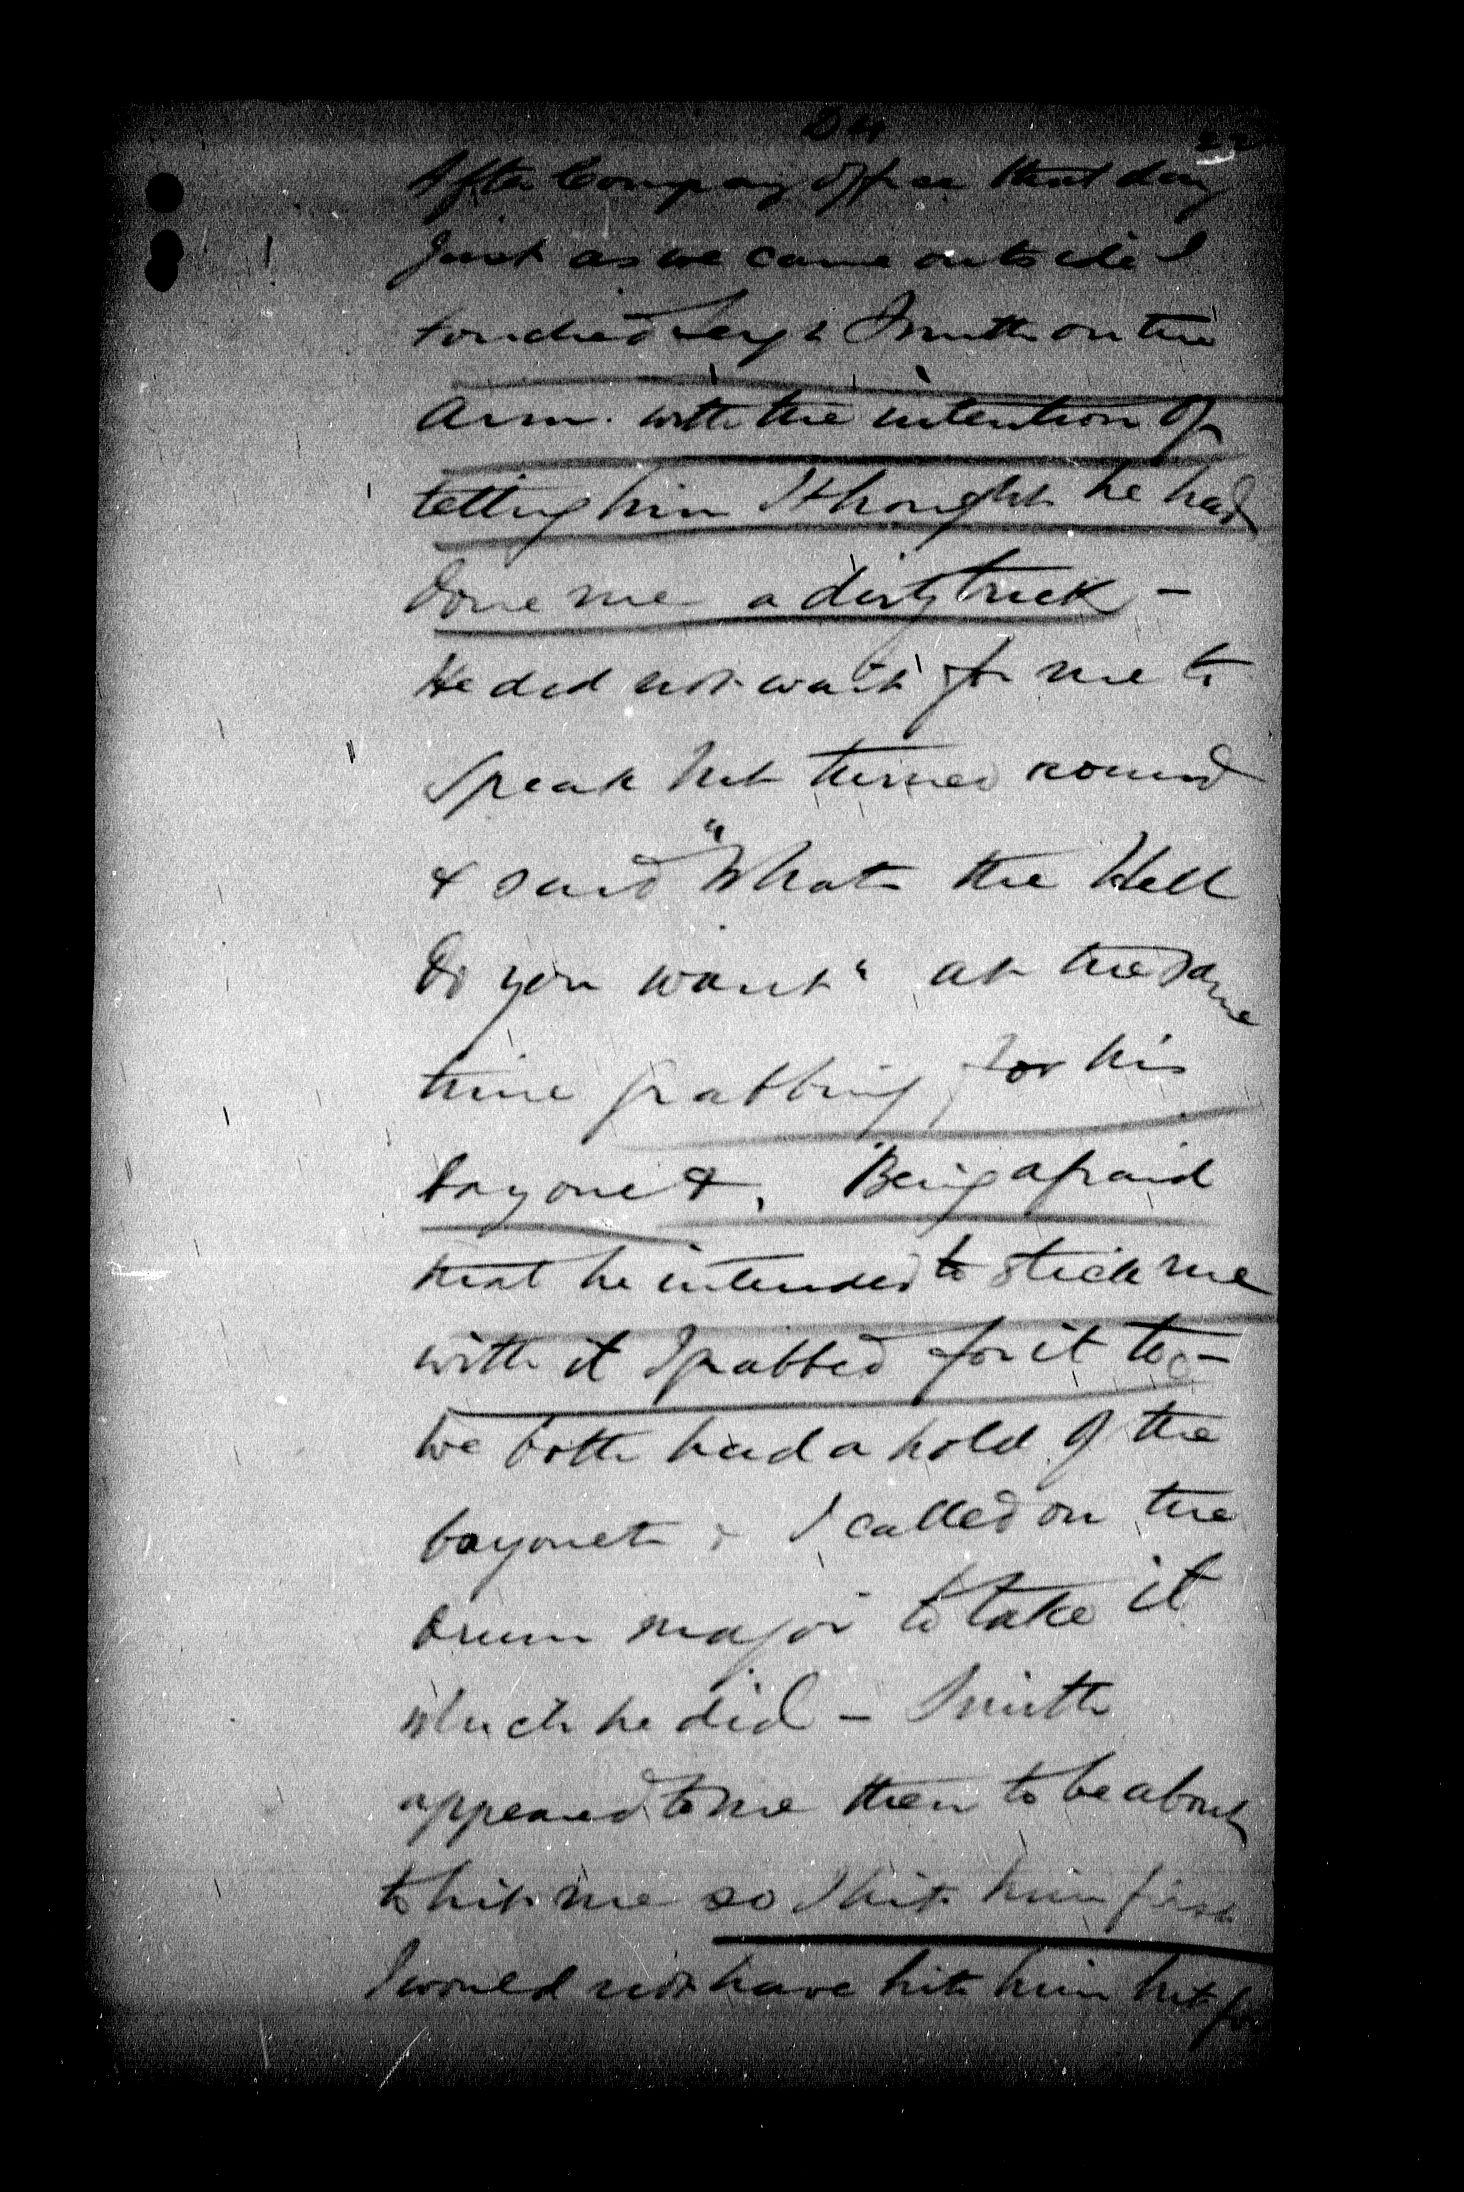 D 4
After Company office that day
just as we came outside I
touched Sergt Smith on the
arm. with the intention of
telling him I thought he had
done me a dirty trick -
He did not wait for me to
speak but turned round
& said "What the Hell
do you want" at the same
time grabbing for his
bayonet. Being afraid
that he intended to stick me
with it I grabbed for it too -
we both had a hold of the
bayonet & I called on the
Drum major to take it
which he did - Smith
appeared to me then to be about
to hit me so I hit him first
I would not have hit him but for